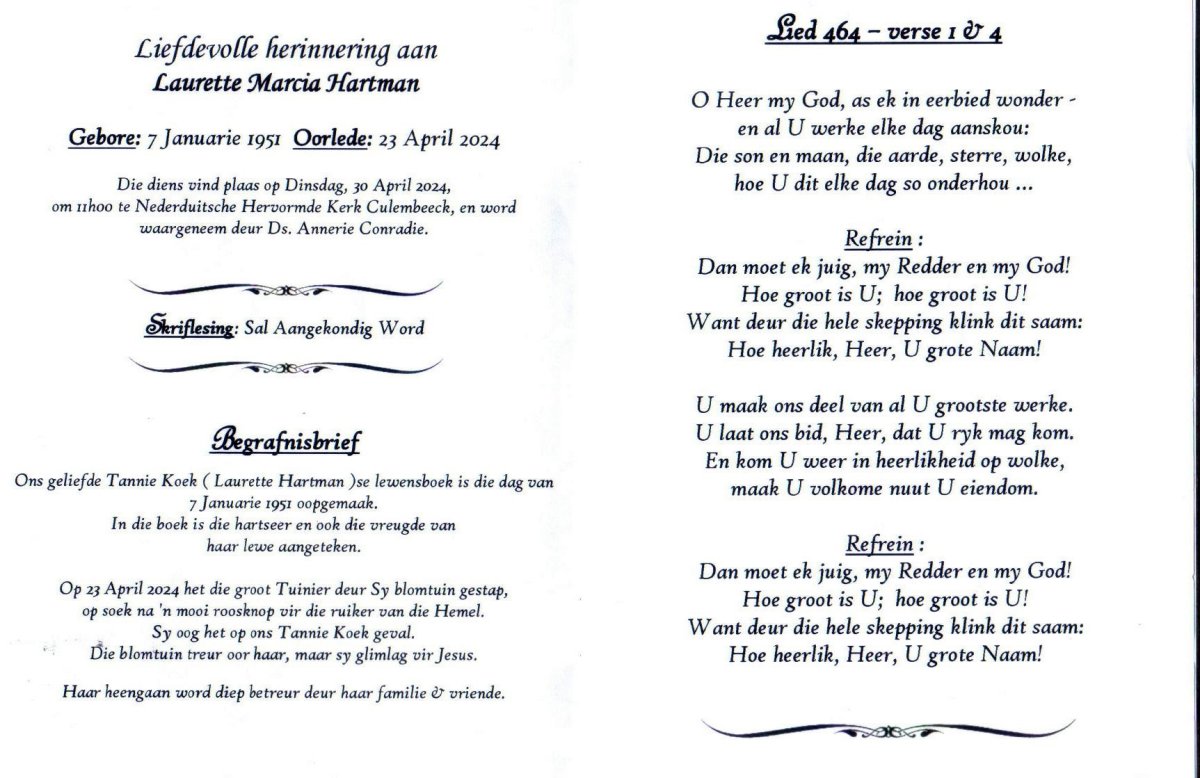 Liefdevolle herinnering aan
Laurette Marcia Hartman
Gebore: 7 Januarie 1951 Oorlede: 23 April 2024
Die diens vind plaas op Dinsdag, 30 April 2024,
om 11h00 te Nederduitsche Hervormde Kerk Culembeeck, en word
waargeneem deur Ds. Annerie Conradie.
Skriflesing: Sal Aangekondig Word
Begrafnisbrief
Ons geliefde Tannie Koek ( Laurette Hartman )se lewensboek is die dag van
7 Januarie 1951 oopgemaak.
In die boek is die hartseer en ook die vreugde van
haar lewe aangeteken.
Op 23 April 2024 het die groot Tuinier deur Sy blomtuin gestap,
op soek na 'n mooi roosknop vir die ruiker van die Hemel.
Sy oog het op ons Tannie Koek geval.
Die blomtuin treur oor haar, maar sy glimlag vir Jesus.
Haar heengaan word diep betreur deur haar familie & vriende.
Lied 464 – verse 1 & 4
O Heer my God, as ek in eerbied wonder -
en al U werke elke dag aanskou:
Die son en maan, die aarde, sterre, wolke,
hoe U dit elke dag so onderhou ...
Refrein :
Dan moet ek juig, my Redder en my God!
Hoe groot is U; hoe groot is U!
Want deur die hele skepping klink dit saam:
Hoe heerlik, Heer, U grote Naam!
U maak ons deel van al U grootste werke.
U laat ons bid, Heer, dat U ryk mag kom.
En kom U weer in heerlikheid op wolke,
maak U volkome nuut U eiendom.
Refrein :
Dan moet ek juig, my Redder en my God!
Hoe groot is U; hoe groot is U!
Want deur die hele skepping klink dit saam:
Hoe heerlik, Heer, U grote Naam!